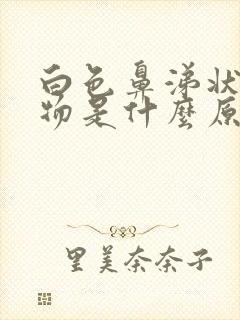 白色鼻涕状
物是什麼原
里美奈奈子